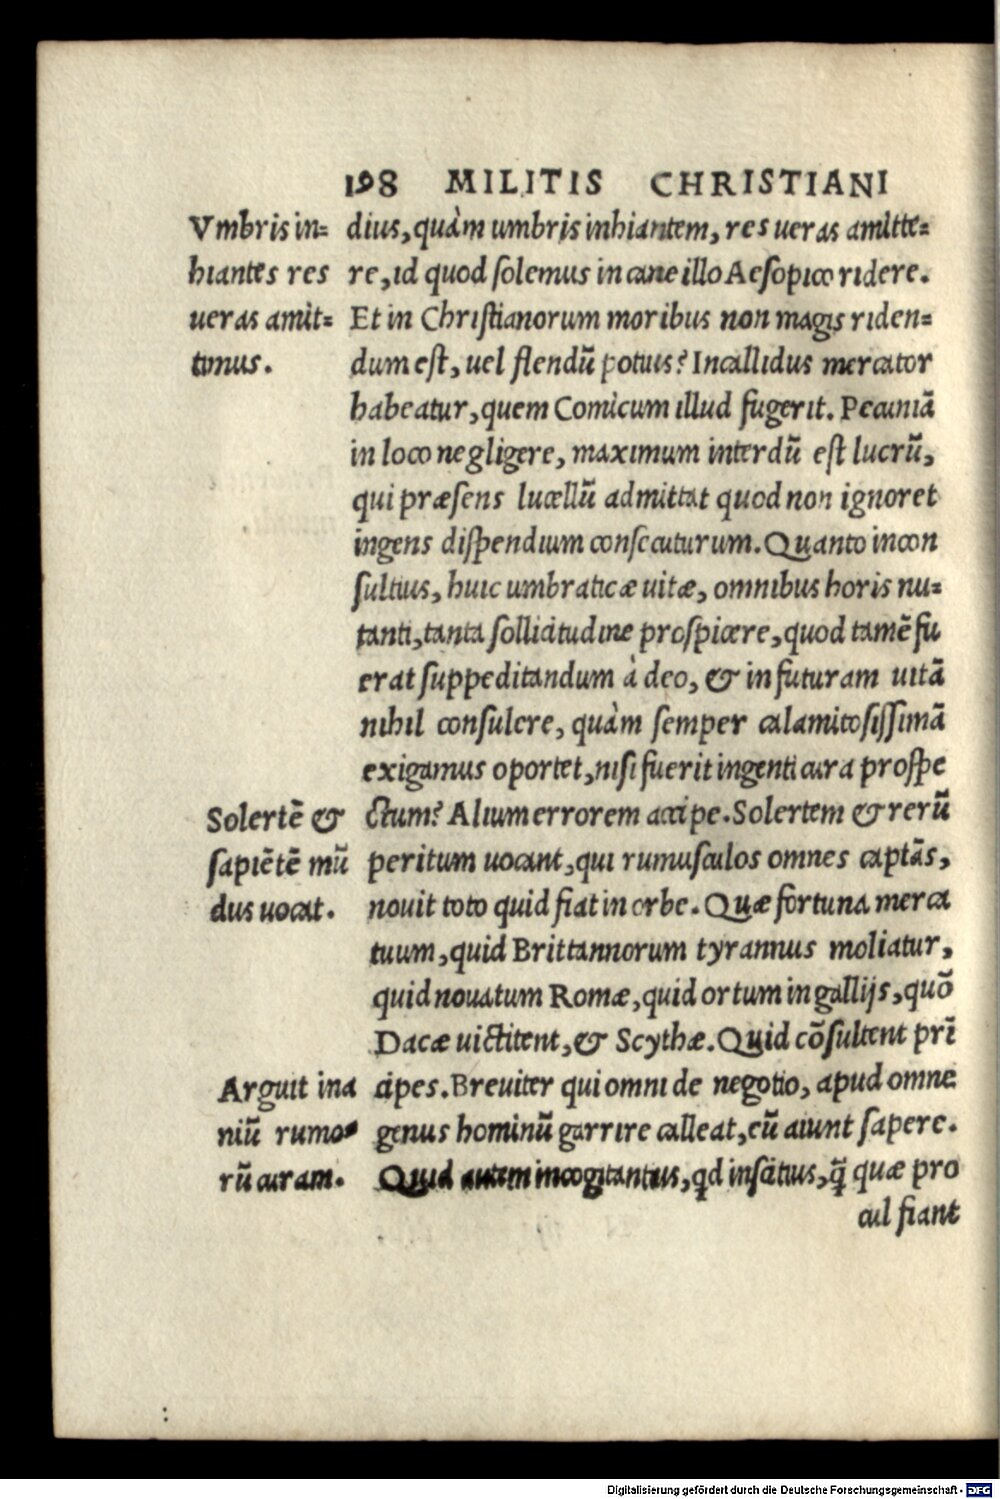 198 MILITIS CHRISTIANI
Vmbris in=
hiantes res
ueras amit=
timus.
dius, quàm umbris inhiantem, res ueras amitte=
re, id quod solemus in cane illo Aesopico ridere.
Et in Christianorum moribus non magis riden=
dum est, uel flendū potius? Incallidus mercator
habeatur, quem Comicum illud fugerit. Pecuniā
in loco negligere, maximum interdū est lucrū,
qui præsens lucellū admittat quod non ignoret
ingens dispendium consecuturum. Quanto incon
sultius, huic umbraticæ uitæ, omnibus horis nu=
tanti, tanta sollicitudine prospicere, quod tamē fu
erat suppeditandum à deo, & in futuram uitā
nihil consulere, quàm semper calamitosissimā
exigamus oportet, nisi fuerit ingenti cura prospe
Solertē &
sapiētē mū
dus uocat.
ctum? Alium errorem accipe. Solertem & rerū
peritum uocant, qui rumusculos omnes captās,
nouit toto quid fiat in orbe. Quæ fortuna merca
tuum, quid Brittannorum tyrannus moliatur,
quid nouatum Romæ, quid ortum in gallijs, quō
Dacæ uictitent, & Scythæ. Quid cōsultent prī
Arguit ina
niū rumo=
rū curam.
cipes. Breuiter qui omni de negotio, apud omne
genus hominū garrire calleat, eū aiunt sapere.
Quid autem incogitantius, qd inscitius, q̄ quæ pro
cul fiant
Digitalisierung gefördert durch die Deutsche Forschungsgemeinschaft - DFG